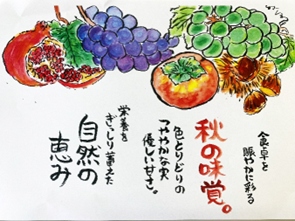 食卓を
賑やかに彩る
秋の味覚。
色とりどりの
つややかな実
優しい甘さ。
栄養を
ぎっしり蓄えた
自然の
恵み